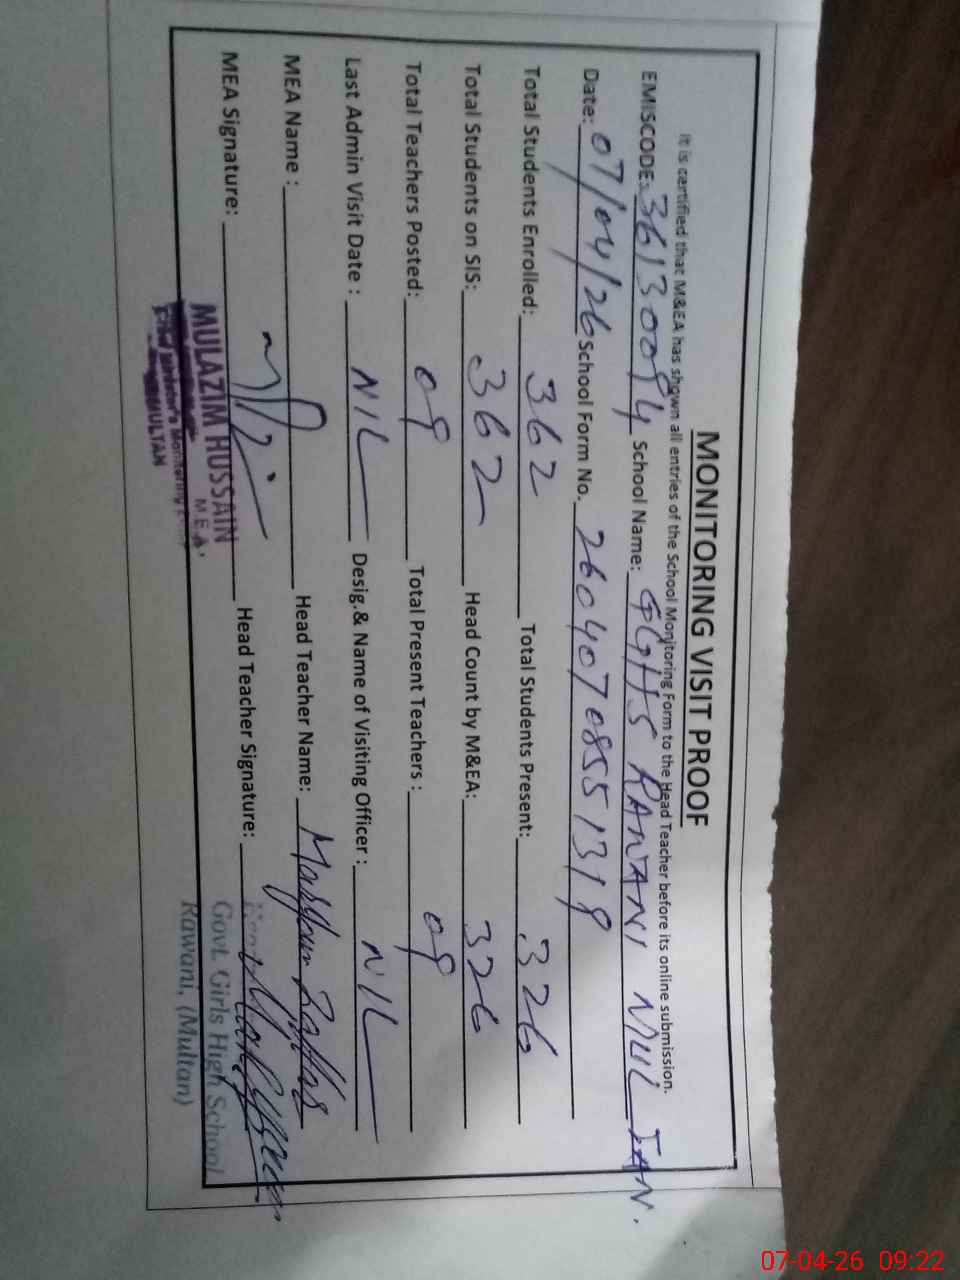 MONITORING VISIT PROOF
It is certified that M&EA has shown all entries of the School Monitoring Form to the Head Teacher before its online submission.
EMISCODE: 36130094 School Name: GGHS RAWANI MULTAN.
Date: 07/04/26 School Form No. 26040708551319
Total Students Enrolled: 362 Total Students Present: 326
Total Students on SIS: 362 Head Count by M&EA: 326
Total Teachers Posted: 09 Total Present Teachers : 09
Last Admin Visit Date : NIL Desig.& Name of Visiting Officer : NIL
MEA Name : Head Teacher Name: Maryum Zaffar
MEA Signature: Head Teacher Signature:
MULAZIM HUSSAIN
M.E.A.
Chief Minister's Monitoring
MULTAN
Govt. Girls High School
Rawani, (Multan)
07-04-26 09:22